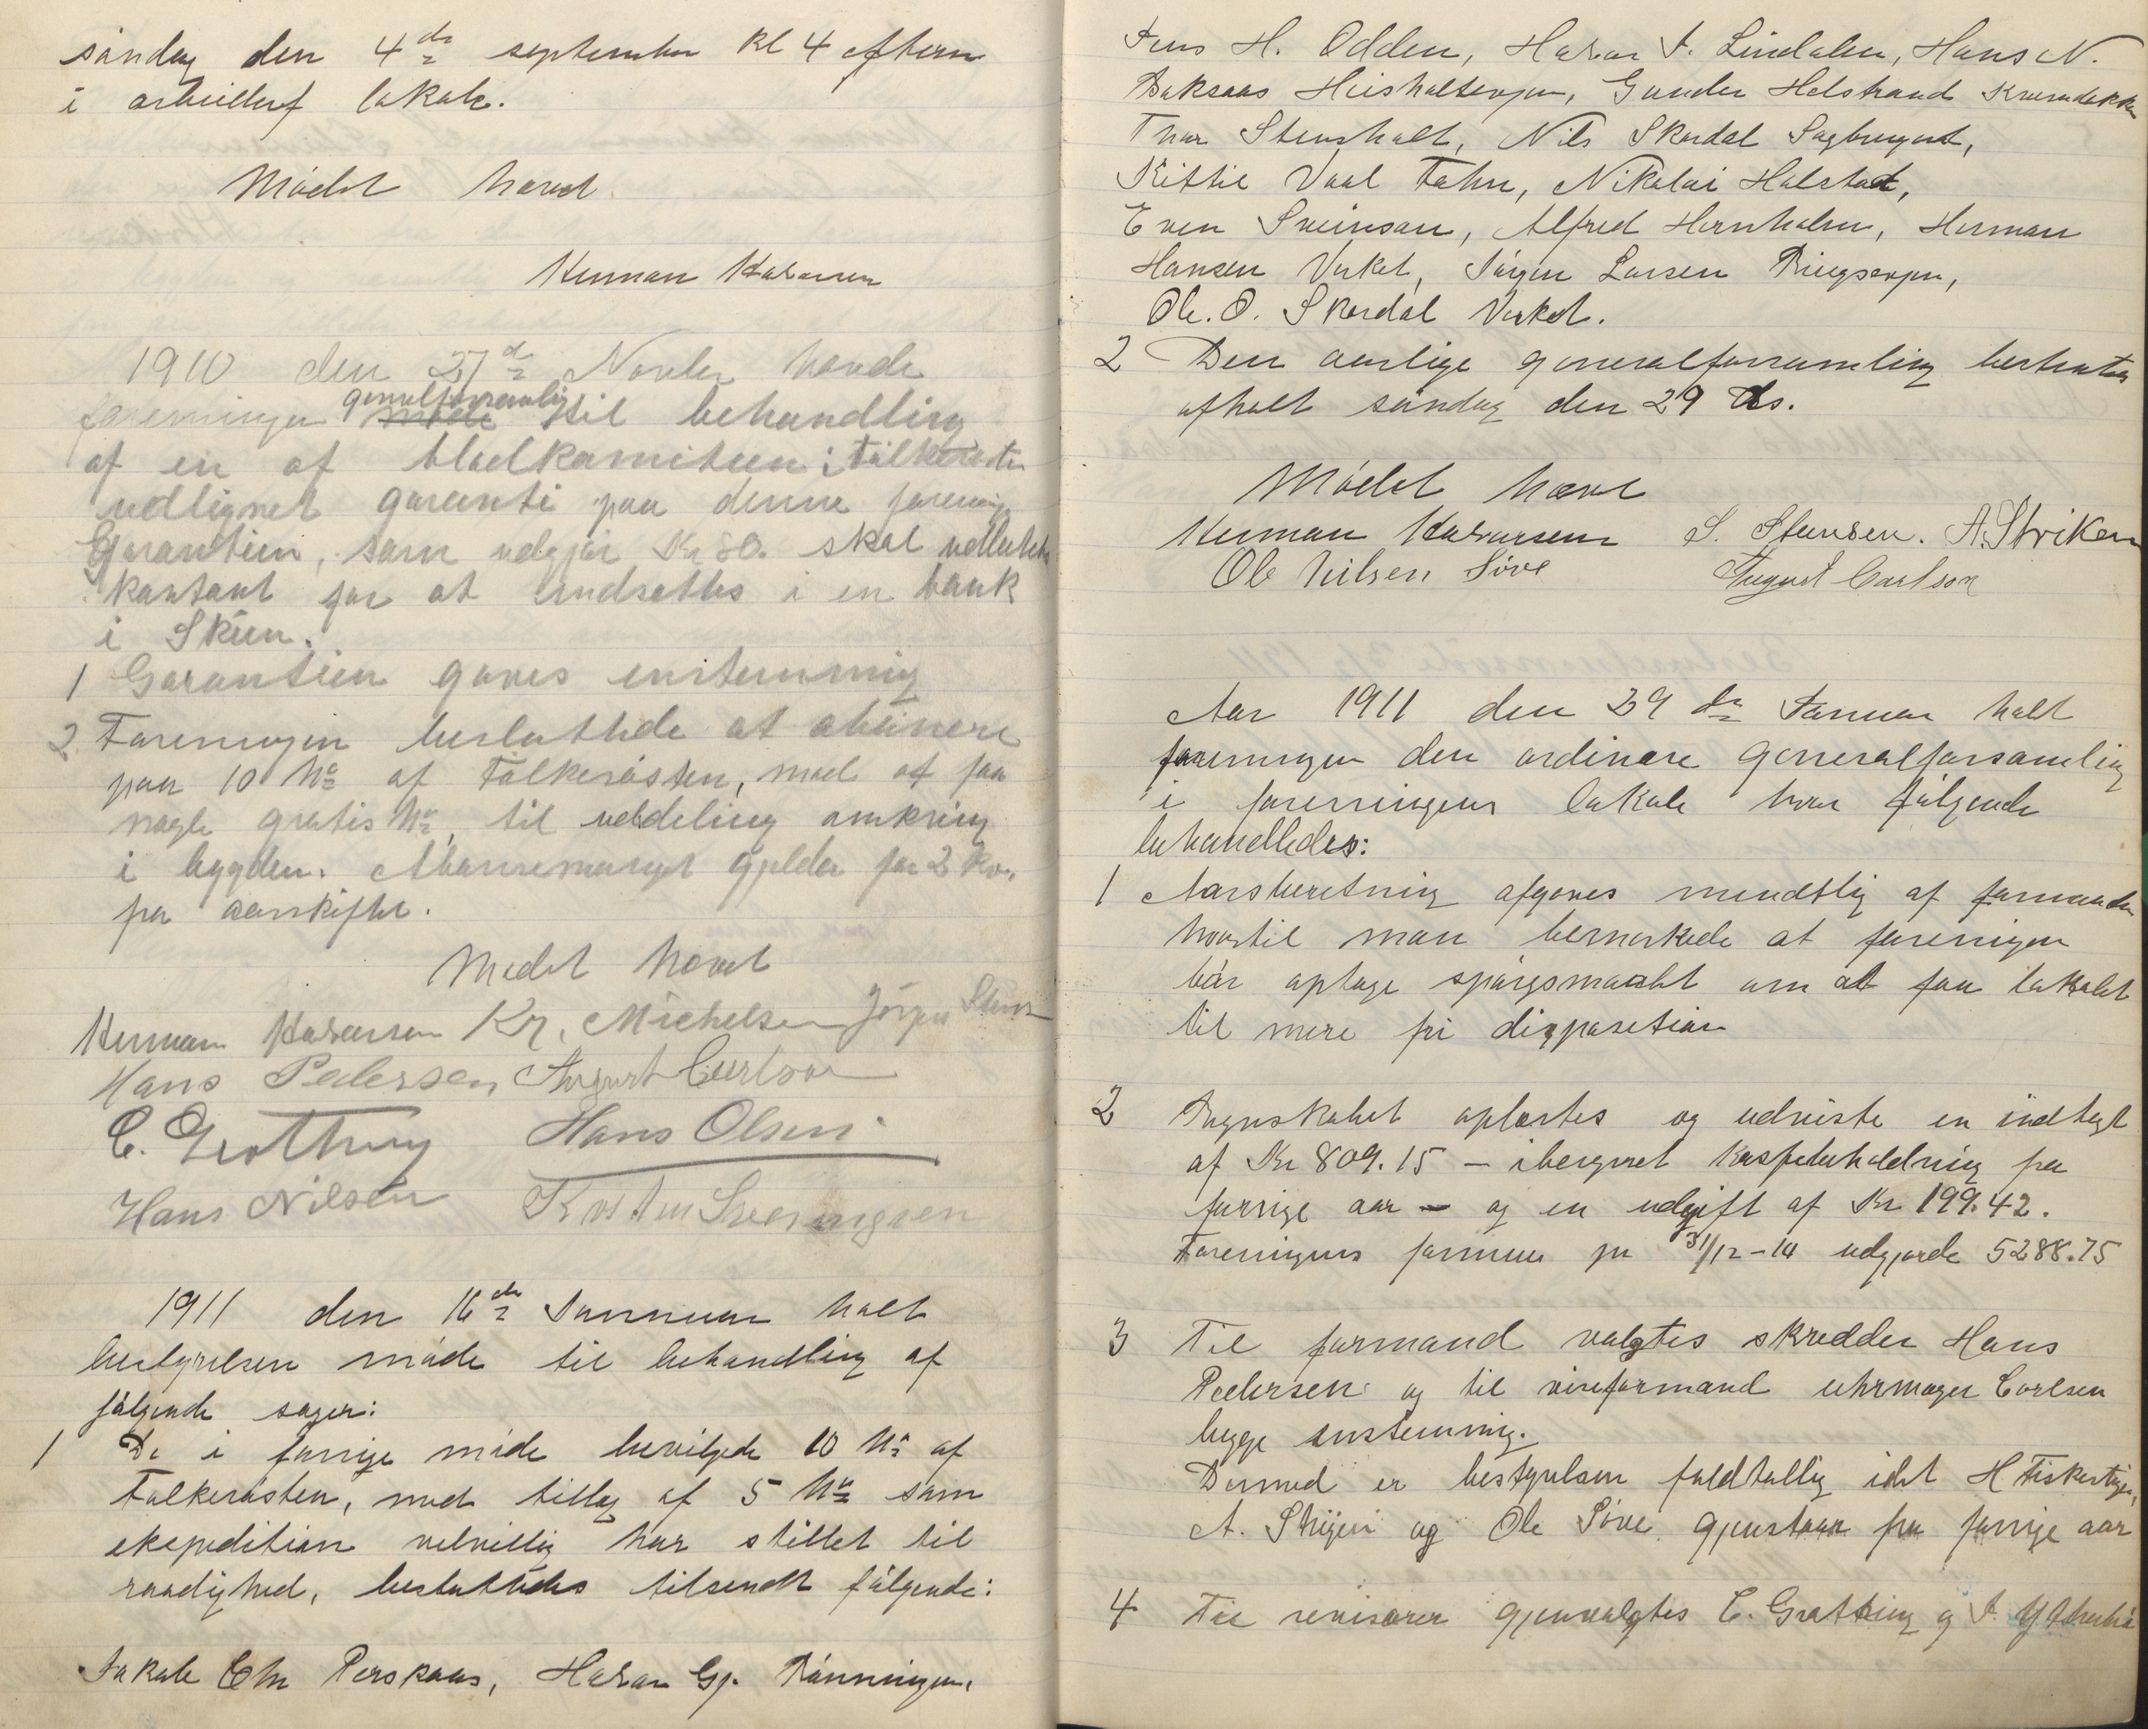 søndag den 4de september kl 4 efterm
i arbeiderf lokale.
Mødet hævet.
Herman Halvorsen
1910 den 27de Novbr havde
foreningen generalforsamling møde til behandling
af en af bladkomiteen i Folkerøsten
udlignet garanti paa denne forening
Garantien, som udgjør Kr 80. skal udbetales
kontant for at indsættes i en bank
i Skien.
1 Garantien gaves enstemmig
2 Foreningen besluttede at abonere
paa 10 No af Folkerøsten, mod at faa
nogle gratis No, til uddeling omkring
i bygden. Abonnementet gjelder for 2 kv.
fra aarsskiftet.
Mødet hævet
Herman Halvorsen Kr. Michelsen Jørgen Stens
Hans Pedersen, August Carlson
C. Grotting Hans Olsen
Hans Nilsen
1911 den 16de Januar holt
bestyrelsen møde til behandling af
følgende sager:
1 De i forrige møde bevilgede 10 No af
Folkerøsten, med tillæg af 5 No som
ekspedition velvillig har stillet til
raadighed, besluttedes tilsendt følgende:
Jakob Chr Perskaas, Halvor Gj. Rønningen,
Jens H. Odden, Halvor J. Lindalen, Hans N.
Bakaas Heisholteien, Gunder Helstrand
Thor Stensholt, Nils Skardal Sagbruget,
Kittil Vaal Fahn, Nikolai Halstad,
Even Sveinson, Alfred Hernholm, Herman
Hansen Verket, Jørgen Larsen Ringsevjen,
Ole. O. Skardal Verket.
2 Den aarlige generalforsamling bestemtes
afholt søndag den 29 ds.
Mødet hævet
Herman Halvorsen S. Stensen. A. Striken
Ole Nilsen Søve August Carlson
Aar 1911 den 29de Januar holt
foreningen den ordinære generalforsamling
i foreningens lokale hvor følgende
behandledes:
1 Aarsberetning afgaves mundtlig af formanden
hvortil man bemerkede at foreningen
bør optage spørgsmaalet om at faa lokalet
til mere fri disposition
2 Regnskabet oplæstes og udviste en indtegt
af Kr 809.15 – iberegnet kassebeholdning fra
forrige aar – og en udgift af Kr 199.42.
Foreningens formue pr 31/12-10 udgjorde 5288.75
3 Til formand valgtes skredder Hans
Pedersen og til viseformand uhrmager Carlsen
begge enstemmig.
Dermed er bestyrelsen fuldtallig idet H Fiskertjen,
A. Strigen og Ole Søve gjenstaar fra forrige aar
4 Til revisorer gjenvalgtes C. Grotting og J. Ytterbø